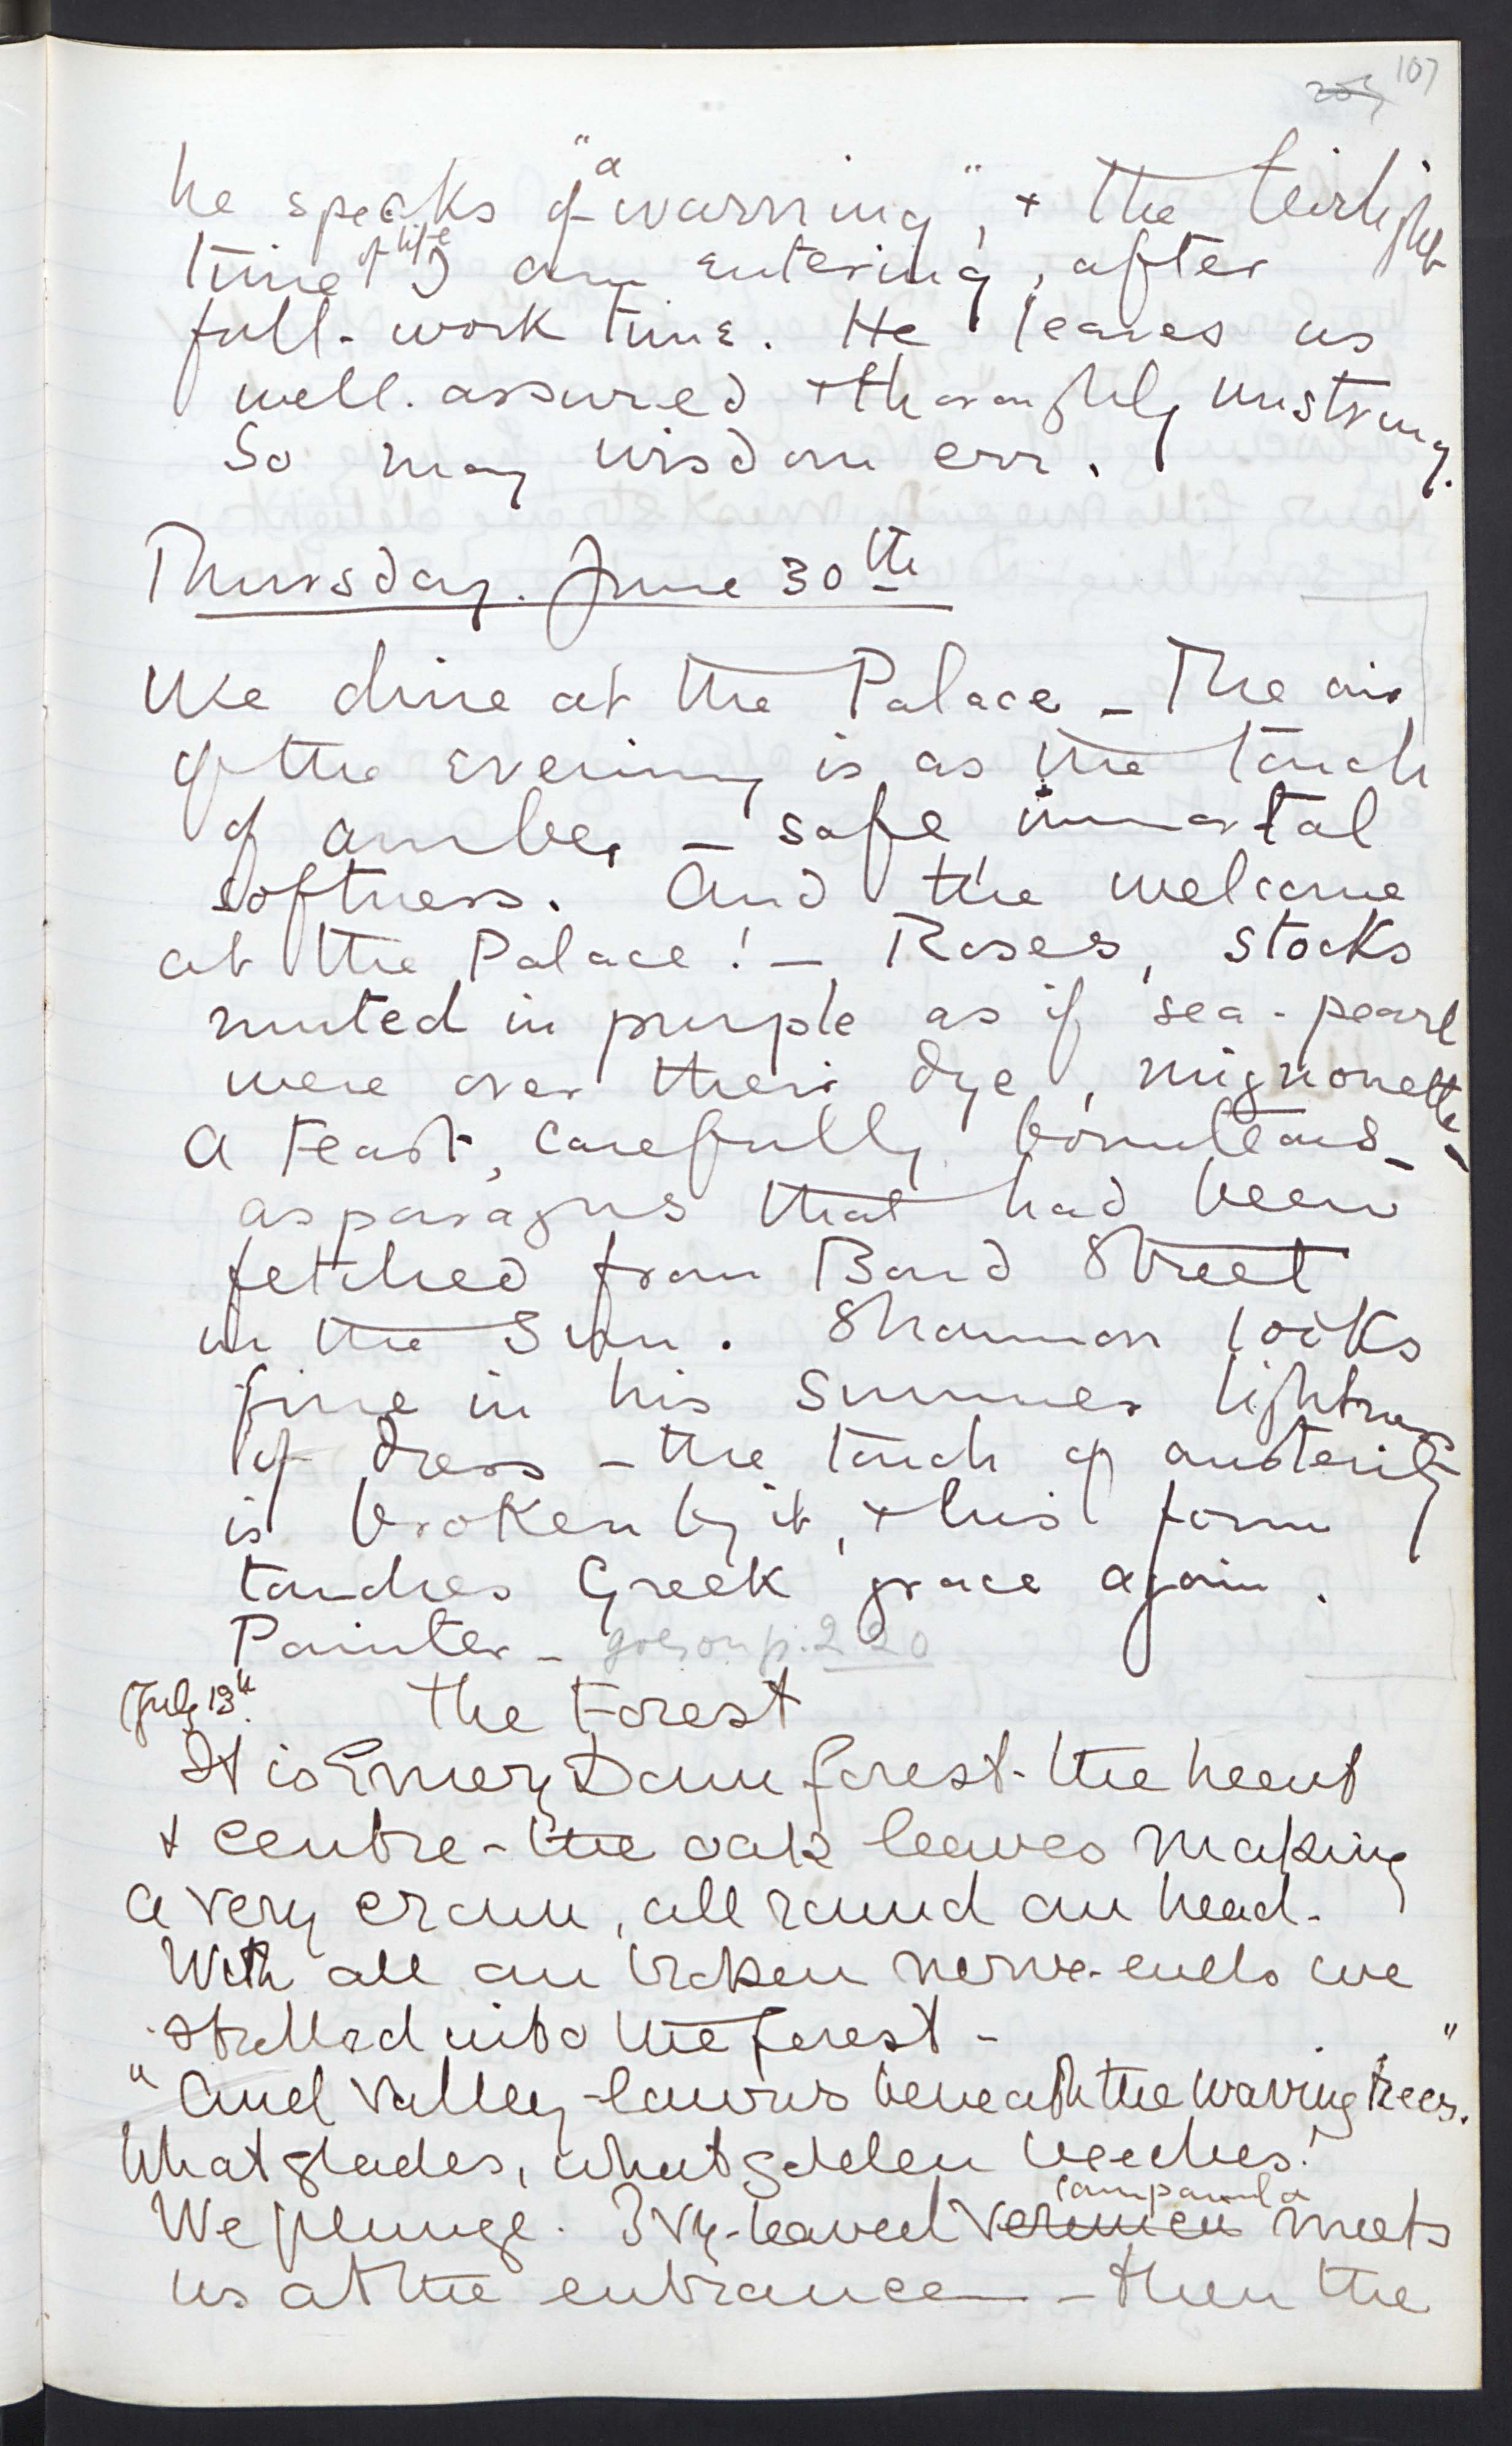 203 107
he speaks of "a warning", + the twilight
time of life I am entering, after
full-work time. He leaves us
well-assured + thoroughly unstrung.
So may wisdom err.
Thursday. June 30th
We dine at the Palace – The air
of the evening is as the touch
of amber – safe immortal
softness. And the welcome
at the Palace! – Roses, stocks
muted in purple as if sea-pearl
were over their dye, mignonette –
a feast, carefully bounteous –
asparagus that had been
fetched from Bond Street
in the Sun. Shannon looks
fine in his Summer lightness
of dress – the touch of austerity
is broken by it, + his form
touches Greek grace again.
Painter – goes on p. 220
(July 13th. The Forest
It is Emery Down forest – the heart
+ centre – the oak leaves making
a very crown, all round our head.
With all our broken nerve-ends we
strolled into the forest –
"And valley-lawns beneath the waving trees."
What glades, what golden beeches!
We plunge. Ivy-leaved campanula meets
us at the entrance – then the